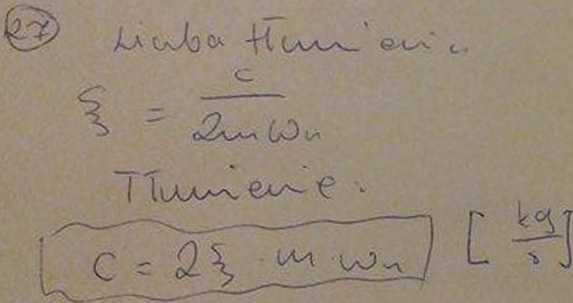 27
Liczba tłumienia
ξ = c / 2mωn
Tłumienie.
C = 2ξ · m · ωn [kg/s]